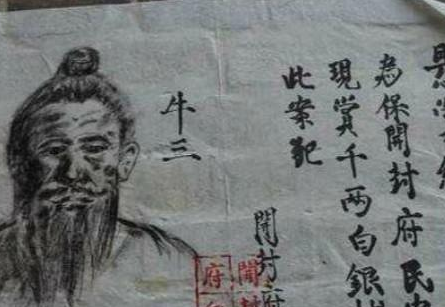 為保開封府民
現賞千两白銀
此案犯
牛三
開封府
開封
府